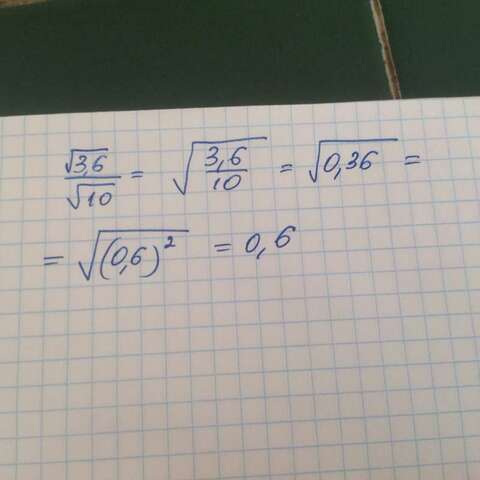 √3,6/√10 = √(3,6/10) = √0,36 =
= √(0,6)² = 0,6